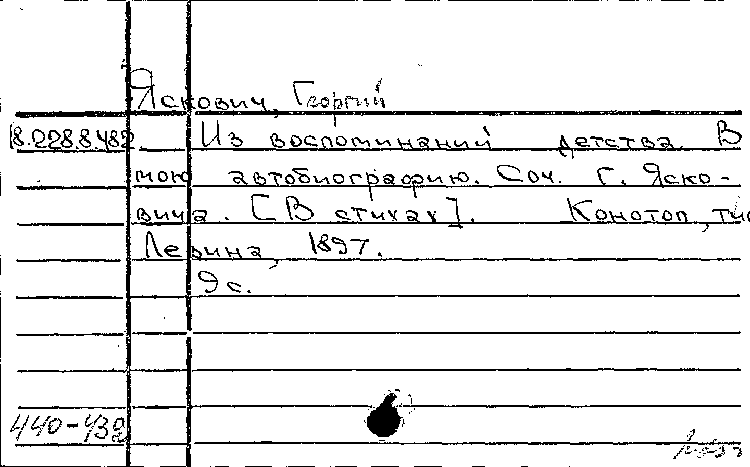 Яскович, Георгий
18.228.8.482 Из воспоминаний детства. В
мою автобиографию. Соч. Г. Яско-
вича. [В стихах]. Конотоп, тип
Левина, 1897.
9 с.
440-432